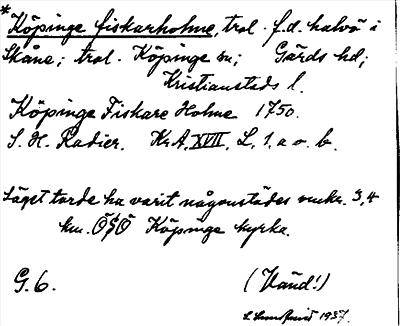 * Köpinge fiskarholme, trol. f.d. halvö i
Skåne; trol. Köpinge sn; Gärds hd;
Kristianstads l.
Köpinge Fiskare Holme 1750.
S. H. Radier. Kr.A. XVII. L, 1. a o. b.
Läget torde ha varit någonstädes omkr. 3,4
km. ÖSÖ Köpinge kyrka.
G. 6. (Vänd!)
1937.